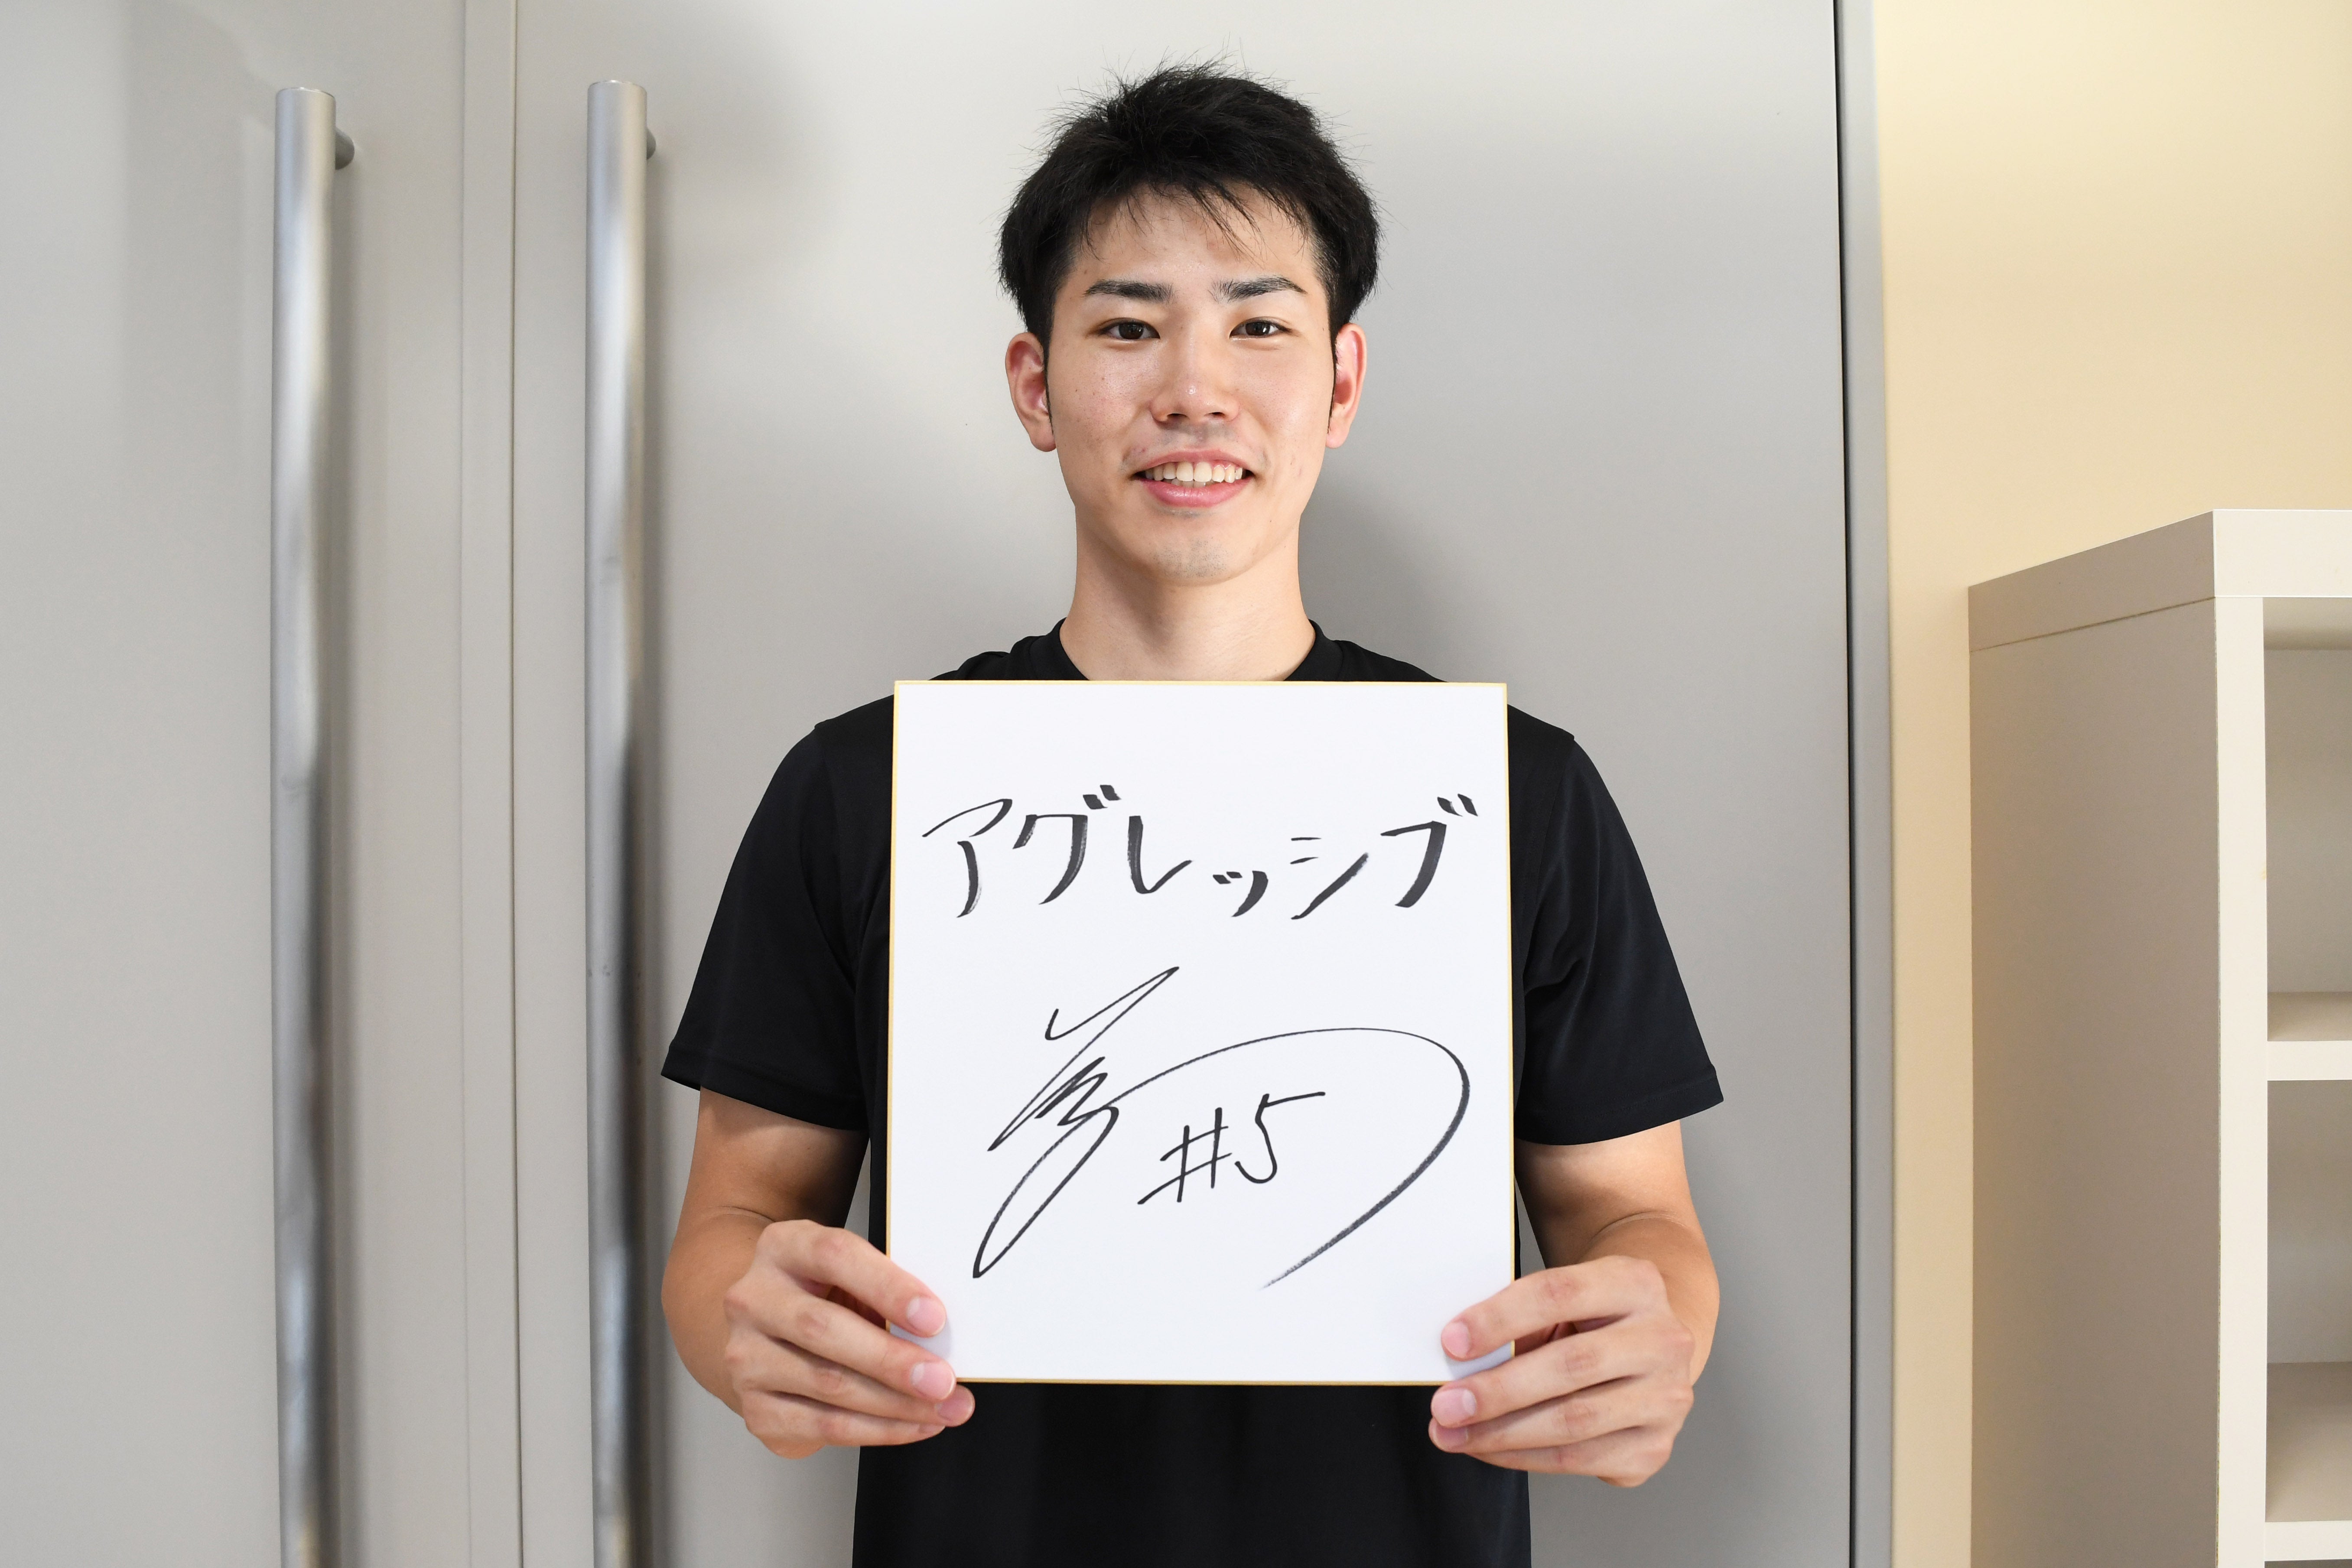 アグレッシブ
#5